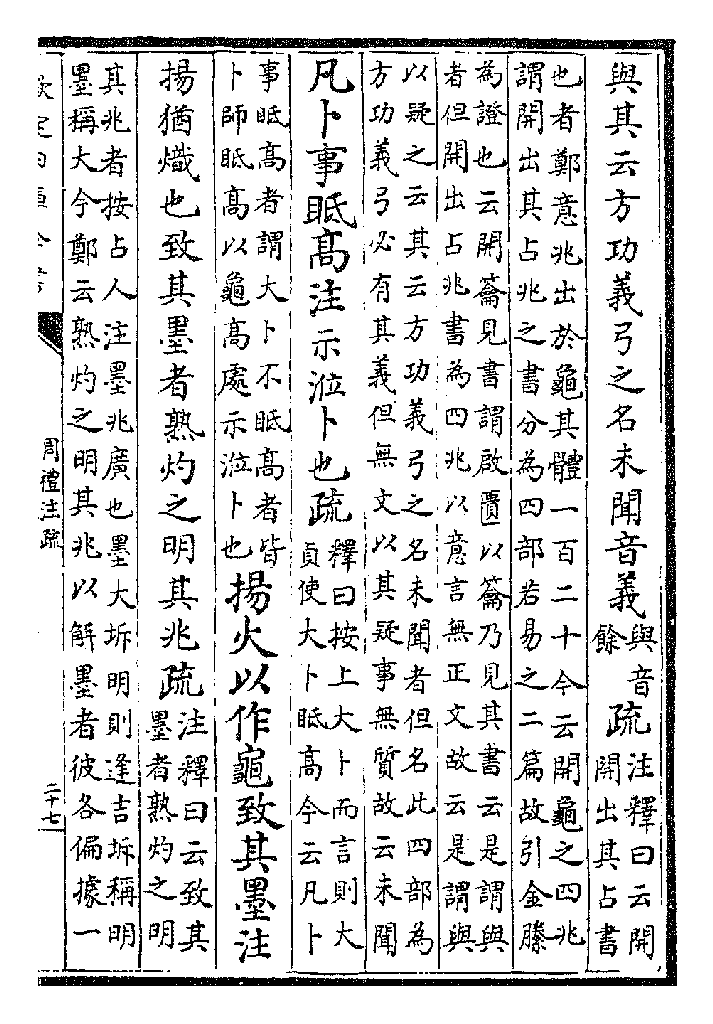 與其云方功義弓之名未聞音義與音餘疏注釋曰云開開出其占書
也者鄭意兆出於龜其體一百二十今云開龜之四兆
謂開出其占兆之書分為四部若易之二篇故引金縢
為證也云開籥見書謂啟匱以籥乃見其書云是謂與
者但開出占兆書為四兆以意言無正文故云是謂與
以疑之云其云方功義弓之名未聞者但名此四部為
方功義弓必有其義但無文以其疑事無質故云未聞
凡卜事眡高注示涖卜也疏釋曰按上大卜而言則大貞使大卜眡高今云凡卜
事眡高者謂大卜不眡高者皆卜師眡高以龜高處示涖卜也揚火以作龜致其墨注
揚猶熾也致其墨者熟灼之明其兆疏注釋曰云致其墨者熟灼之明
其兆者按占人注墨兆廣也墨大坼明則逢吉坼稱明
墨稱大今鄭云熟灼之明其兆以解墨者彼各偏據一
欽定四庫全書
周禮注疏
二十七